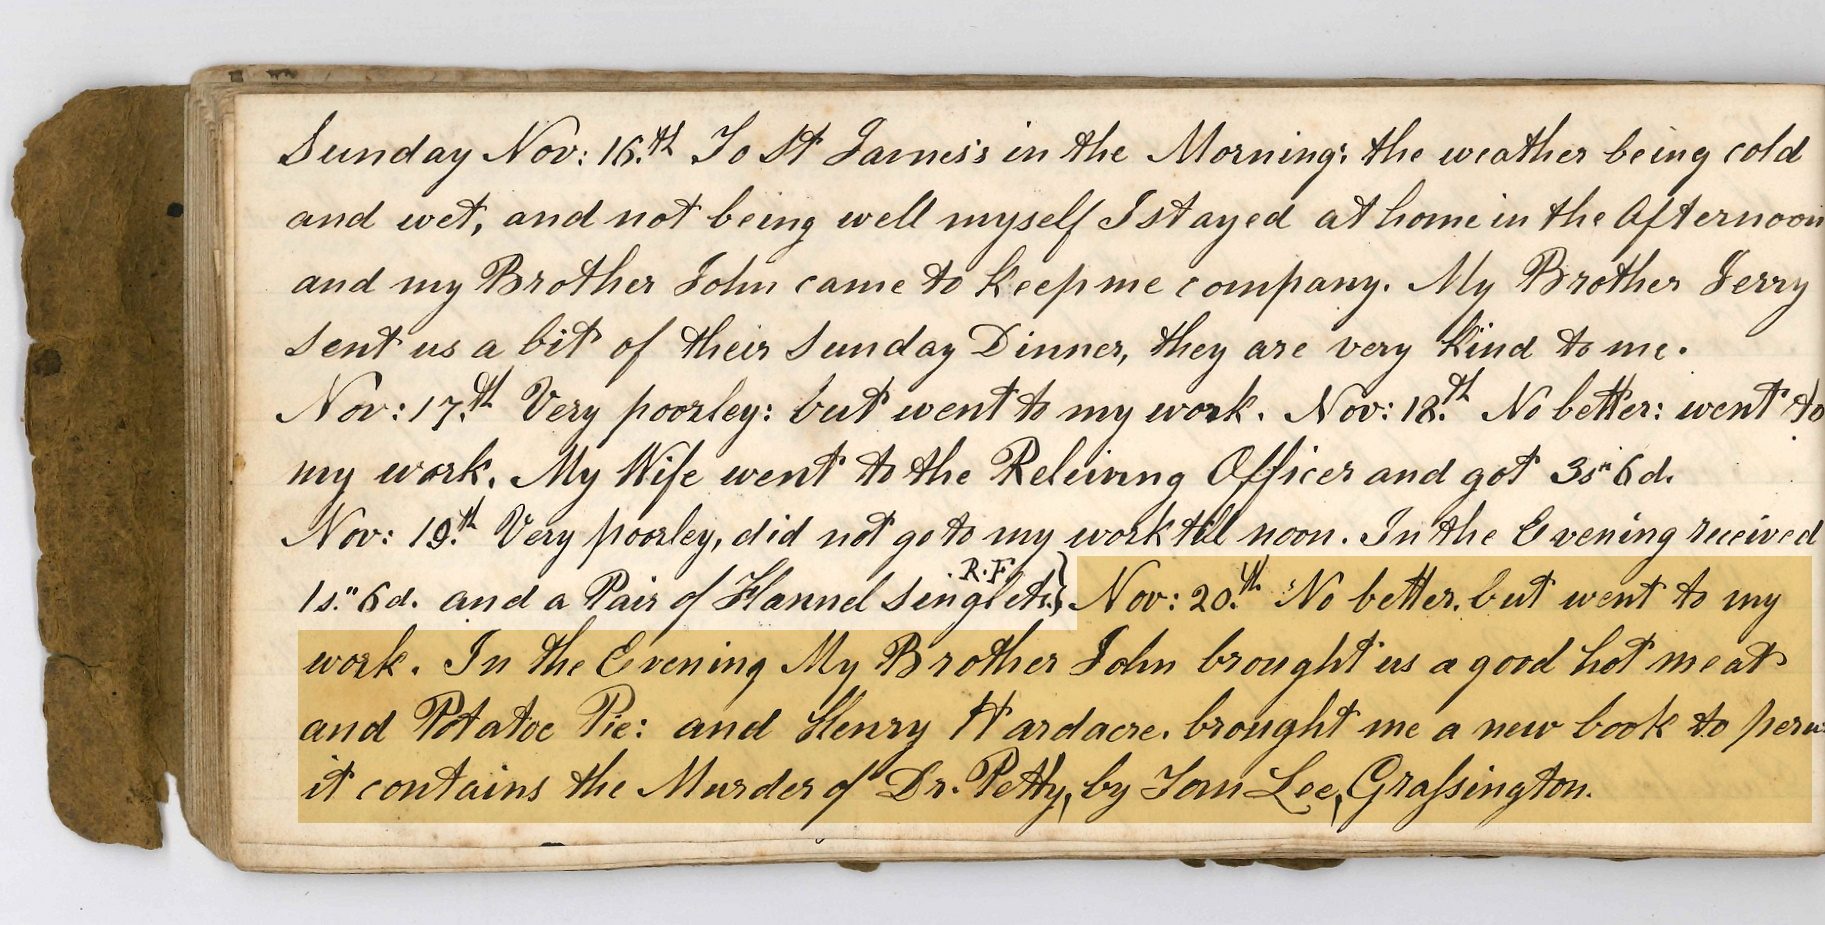 Sunday Nov: 16.th To St James's in the Morning: the weather being cold
and wet, and not being well myself I stayed at home in the Afternoon
and my Brother John came to keep me company. My Brother Jerry
sent us a bit of their Sunday Dinner, they are very kind to me.
Nov: 17.th Very poorley: but went to my work. Nov: 18.th No better: went to
my work. My Wife went to the Releiving Officer and got 3s" 6d.
Nov: 19.th Very poorley, did not go to my work till noon. In the Evening received
R.F.
1s." 6d. and a Pair of Flannel Singlets.} Nov: 20.th No better. but went to my
work. In the Evening My Brother John brought us a good hot meat
and Potatoe Pie: and Henry Hardacre. brought me a new book to peru
it contains the Murder of Dr. Petty, by Tom Lee, Graſsington.